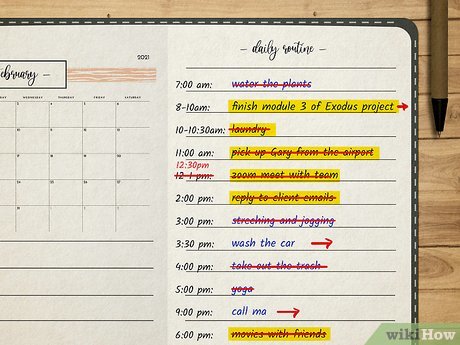 ebruary —
2021
WEDNESDAY THURSDAY FRIDAY SATURDAY
— daily routine —
7:00 am: water the plants
8-10am: finish module 3 of Exodus project →
10-10:30am: laundry
11:00 am: pick up Gary from the airport
12:30pm
12-1 pm: zoom meet with team
2:00 pm: reply to client emails
3:00 pm: streching and jogging
3:30 pm: wash the car →
4:00 pm: take out the trash
5:00 pm: yoga
9:00 pm: call ma →
6:00 pm: movies with friends
wikiHow